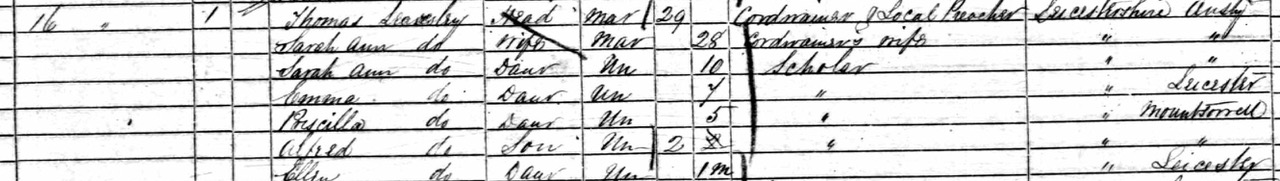 16 " 1 Thomas Leavesley Head Mar 29 Cordwainer & Local Preacher Leicestershire Ansty
Sarah Ann do Wife Mar 28 Cordwainer's wife " "
Sarah Ann do Daur Un 10 Scholar " "
Emma do Daur Un 7 " " Leicester
Priscilla do Daur Un 5 " " Mountsorrell
Alfred do Son Un 2 " " "
Ellen do Daur Un 1m " Leicester